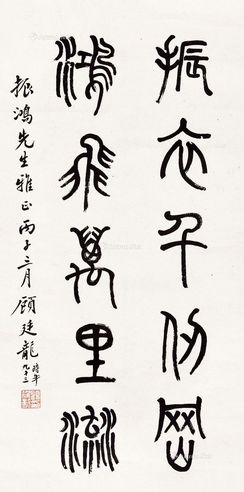 振衣千仞岡
鴻飛萬里流
振鴻先生雅正丙子三月顧廷龍時年九十三